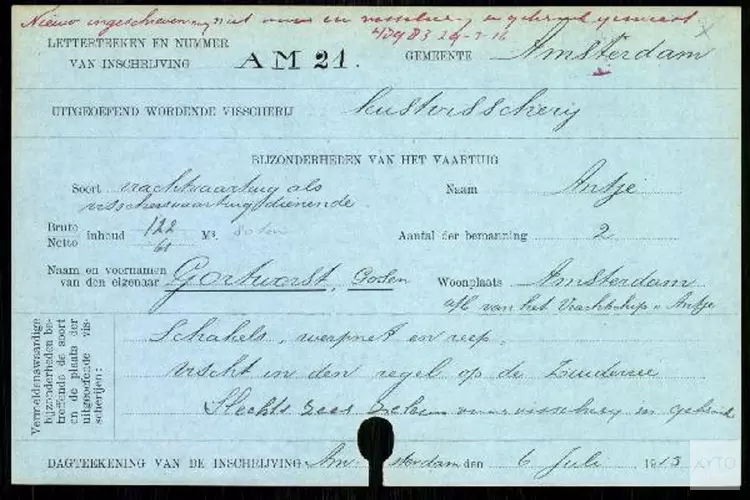 Nieuw ingeschreven, niet voor en visscherij in gebruik geweest
LETTERTREKEN EN NUMMER VAN INSCHRIJVING AM 21. GEMEENTE Amsterdam
UITGEOEFEND WORDENDE VISSCHERIJ Kustvisscherij
BIJZONDERHEDEN VAN HET VAARTUIG
Soort vrachtvaartuig als Naam Antje
visschersvaartuig dienende
Bruto Netto inhoud 122 61 M³. Aantal der bemanning 2
Naam en voornamen van den eigenaar Gortworst, Gosen Woonplaats Amsterdam
a/b van het Vrachtschip "Antje
Vermeldenswaardige bijzonderheden betreffende de soort en de plaats der uitgeoefende visscherijen:
Schakels, werpnet en reep.
Vischt in den regel op de Zuiderzee
Slechts zeer zelden voor visscherij in gebruik
DAGTEEKENING VAN DE INSCHRIJVING Amsterdam den 6 Juli 1915